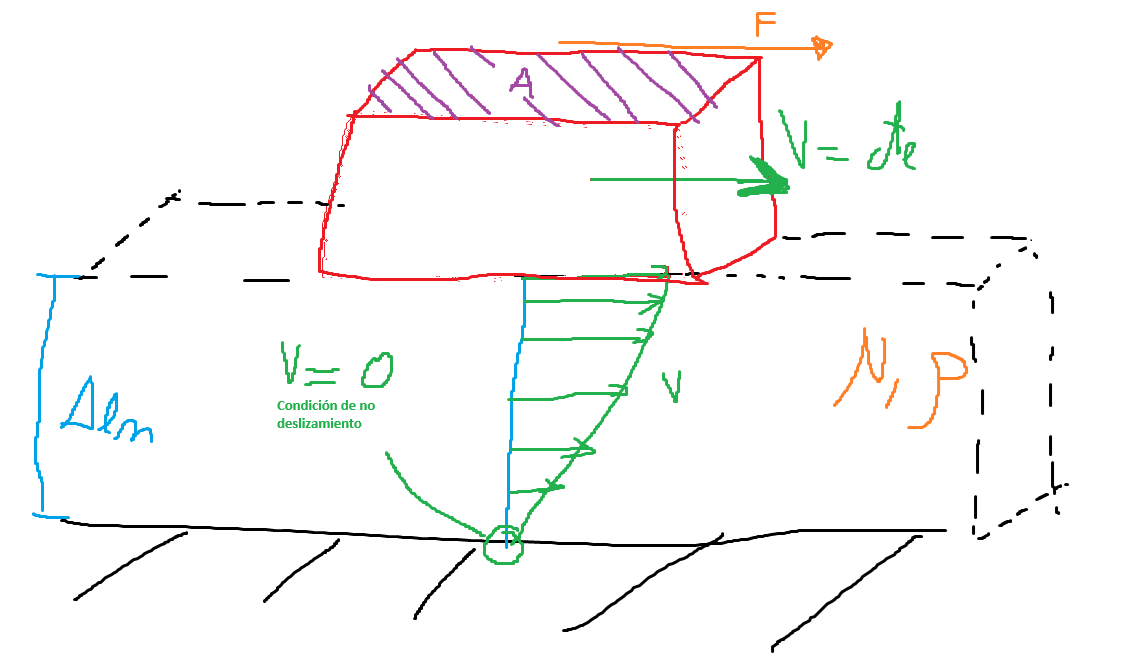 F
A
V = cte
V = 0
Condición de no
deslizamiento
V
Δem
N, P